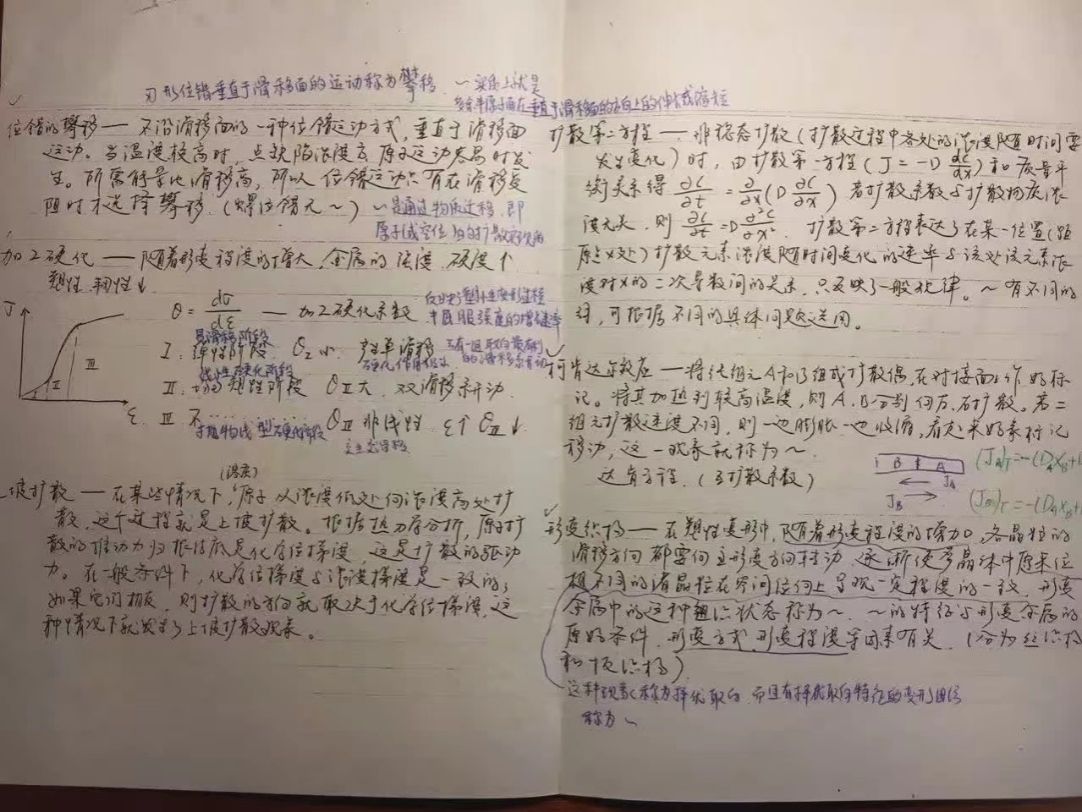 刃形位错垂直于滑移面的运动称为攀移. ~实质上就是
多余半原子面在垂直于滑移面的方向上的伸长或缩短
位错的攀移 — 不沿滑移面的一种位错运动方式, 垂直于滑移面
运动. 当温度较高时, 点缺陷浓度高, 原子运动容易时发
生. 所需能量比滑移高, 所以位错运动只有在滑移受
阻时才选择攀移. (螺位错无~) ~是通过物质迁移, 即
原子或空位的扩散实现的
加工硬化 — 随着形变程度的增大, 金属的强度、硬度↑
塑性、韧性↓
θ = dσ/dε — 加工硬化系数 反映了塑性变形过程
中屈服强度的增长率
易滑移阶段
Ⅰ: 弹性阶段. θ 小. 单滑移
线性硬化阶段
Ⅱ: 塑性阶段 θⅡ 大. 双滑移开动.
抛物线型硬化阶段
Ⅲ: θⅢ 非线性 ε↑ θⅢ↓
Ⅰ Ⅱ Ⅲ ε
坡扩散 — 在某些情况下, 原子从浓度低处向浓度高处扩 (温度)
散, 这个过程就是上坡扩散。根据热力学分析, 原子扩
散的推动力归根结底是化学位梯度, 这是扩散的驱动
力。在一般条件下, 化学位梯度与浓度梯度是一致的;
如果它们相反, 则扩散的方向就取决于化学位梯度, 这
种情况下就发生了上坡扩散现象。
扩散第二方程 — 非稳态扩散 (扩散过程中各处的浓度随时间而
发生变化) 时, 由扩散第一方程 (J = -D dC/dx) 和质量平
衡关系得 ∂C/∂t = ∂/∂x (D ∂C/∂x) 若扩散系数与扩散物质浓
度无关, 则 ∂C/∂t = D ∂²C/∂x². 扩散第二方程表达了在某一位置(距
原点x处) 扩散元素浓度随时间变化的速率与该处该元素浓
度对x的二次导数间的关系, 只反映了一般规律。~有不同的
解, 可根据不同的具体问题选用。
柯肯达尔效应 — 将纯组元A和B组成扩散偶, 在对接面上作好标
记。将其加热到较高温度, 则A、B分别向左、右扩散。若二
组元扩散速度不同, 则一边膨胀一边收缩, 看起来好象标记
移动, 这一现象就称为~.
达肯方程. (互扩散系数)
B A
J_A
J_B
形变织构 — 在塑性变形中, 随着形变程度的增加, 各晶粒的
滑移方向都要向主形变方向转动, 逐渐使多晶体中原来位
相不同的各晶粒在空间位向上呈现一定程度的一致, 形变
金属中的这种组织状态称为~. ~的特征与形变金属的
原始条件、形变方式、形变程度等因素有关. (分为丝织构
和板织构)
这种现象称为择优取向, 而具有择优取向特征的变形组织
称为~